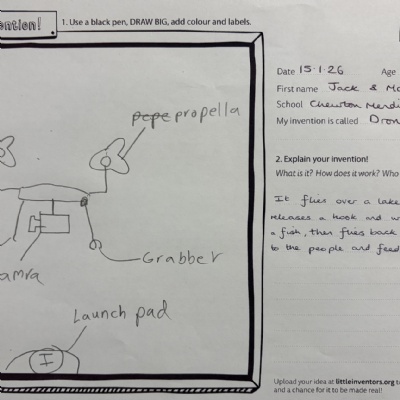 ention!
1. Use a black pen, DRAW BIG, add colour and labels.
propella
Grabber
amra
Launch pad
I
Date 15·1·26 Age
First name Jack & Mo
School Chewton Mendi
My invention is called Dron
2. Explain your invention!
What is it? How does it work? Who
It flies over a lake
releases a hook and w
a fish, then flies back
to the people and feed
Upload your idea at littleinventors.org to
and a chance for it to be made real!